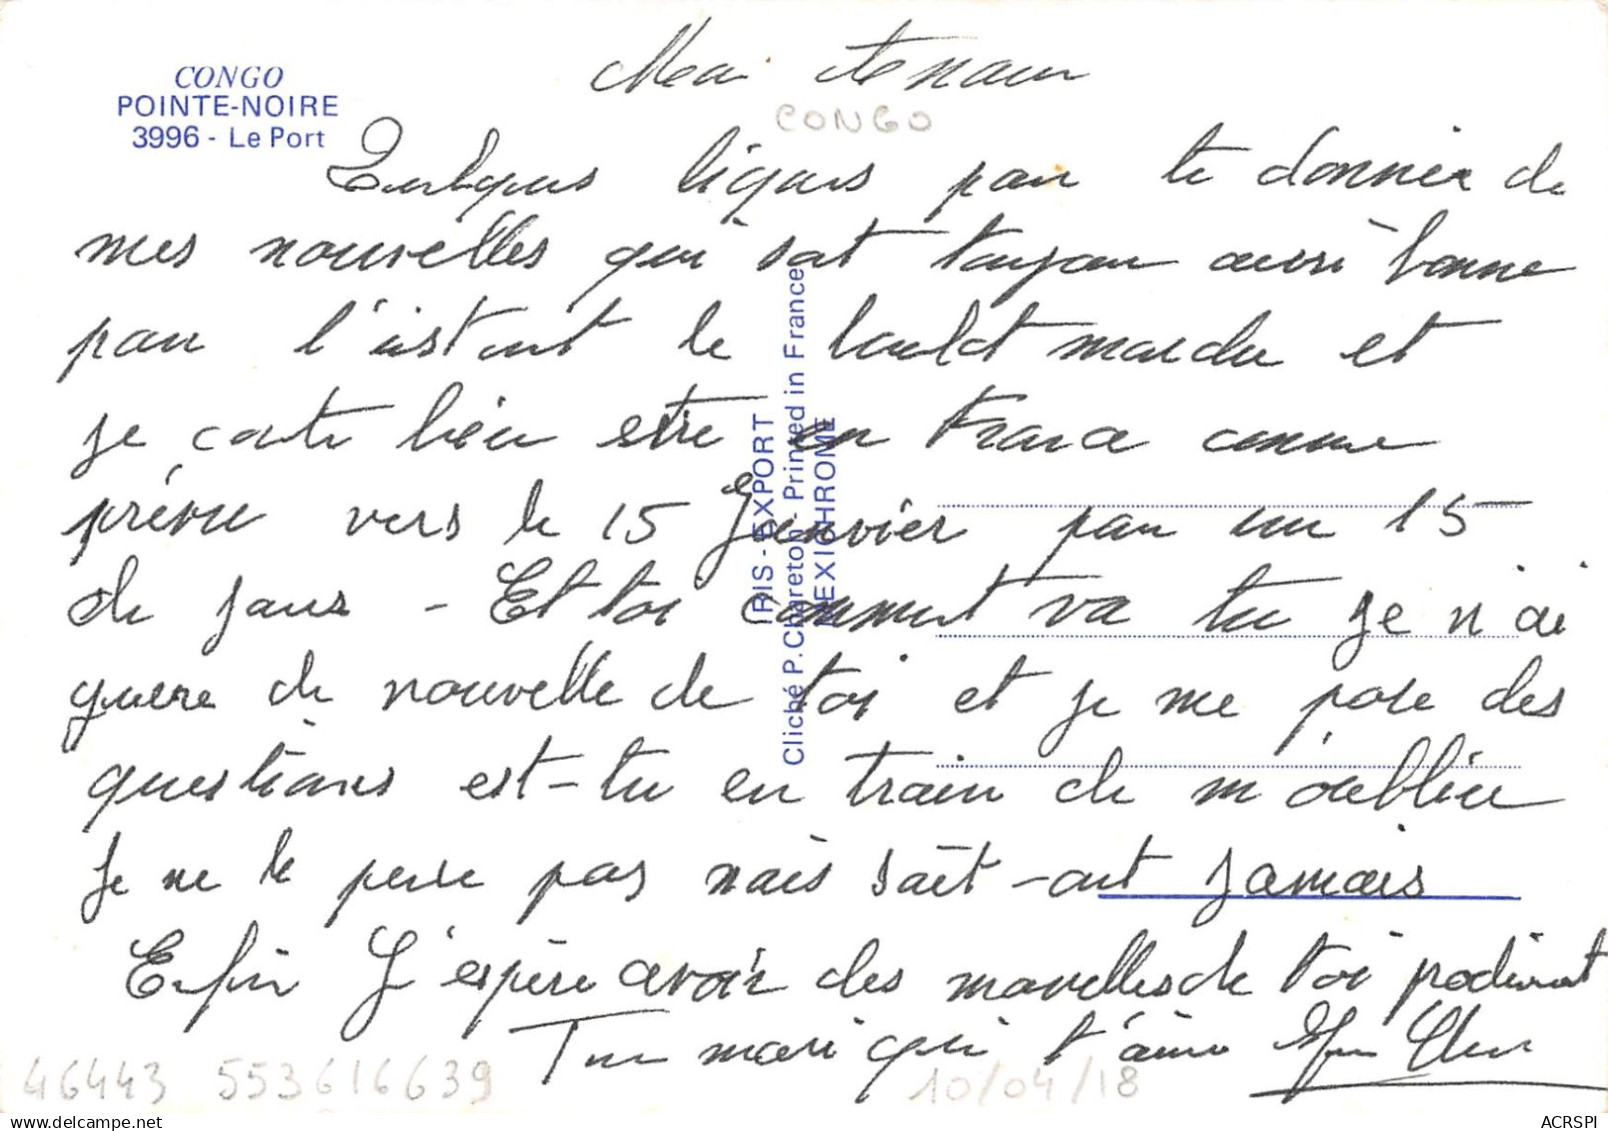 CONGO
POINTE-NOIRE
3996 - Le Port
CONGO
Quelques lignes pour te donner de
mes nouvelles qui soit toujour aussi bonne
pour l'istant le boulot marche et
je conte bien etre en France comme
prévu vers le 15 Janvier pour un 15
de jours - Et toi comment va tu je n'ai
guere de nouvelle de toi et je me pose des
questions est-tu en train de m'oublier
Je ne le pense pas mais sait-ont jamais
Enfin J'espère avoir des nouvelles de toi
Ton mari qui t'aime
IRIS - EXPORT
Cliché P. Chareton - Printed in France
MEXICHROME
46443 553616639 10/04/18
ACRSPI